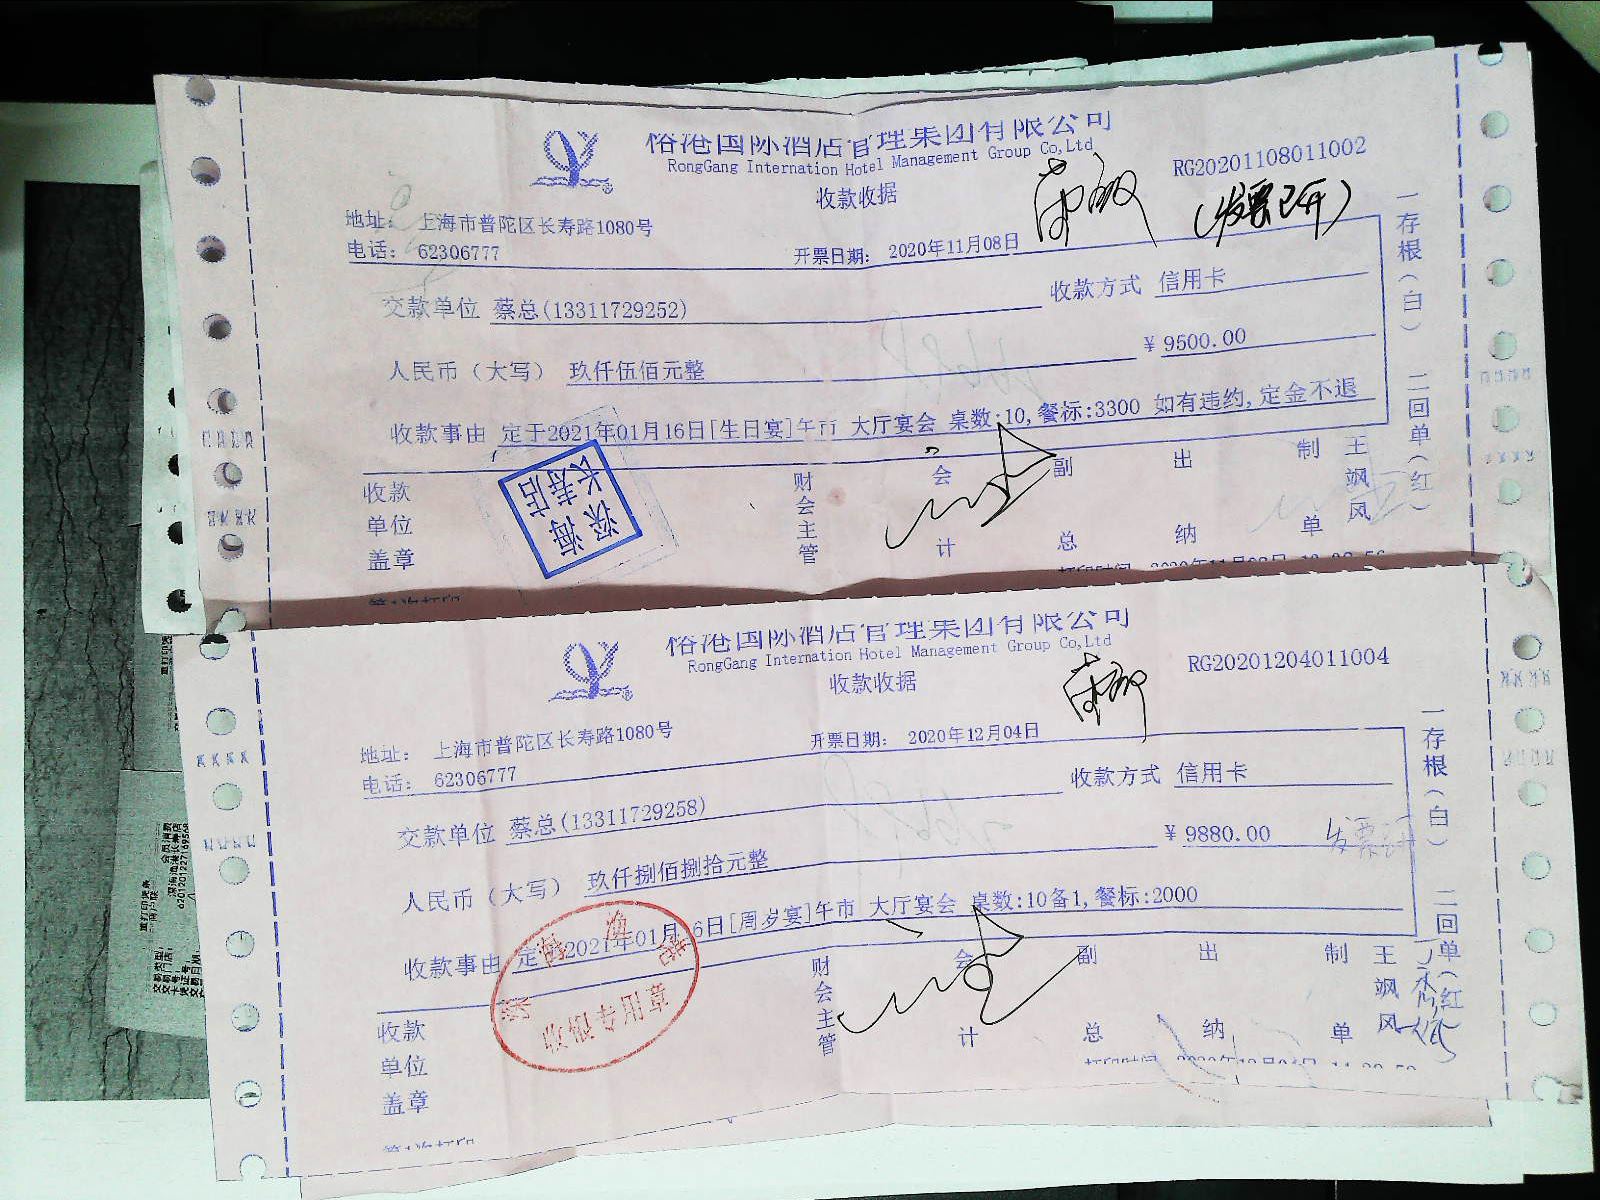 裕港国际酒店管理集团有限公司
RongGang International Hotel Management Group Co,Ltd
收款收据
RG20201108011002
(发票已开)
地址: 上海市普陀区长寿路1080号
电话: 62306777
开票日期: 2020年11月08日
交款单位 蔡总(13311729252)
收款方式 信用卡
人民币（大写） 玖仟伍佰元整
¥ 9500.00
收款事由 定于2021年01月16日[生日宴]午市 大厅宴会 桌数:10,餐标:3300 如有违约,定金不退
收款单位盖章
财会主管
会计
副总
出纳
制单
王飒风
一存根(白) 二回单(红)
深海
长寿店
裕港国际酒店管理集团有限公司
RongGang International Hotel Management Group Co,Ltd
收款收据
RG20201204011004
地址: 上海市普陀区长寿路1080号
电话: 62306777
开票日期: 2020年12月04日
交款单位 蔡总(13311729258)
收款方式 信用卡
人民币（大写） 玖仟捌佰捌拾元整
¥ 9880.00
发票
收款事由 定于2021年01月16日[周岁宴]午市 大厅宴会 桌数:10备1,餐标:2000
收款单位盖章
财会主管
会计
副总
出纳
制单
王飒风
一存根(白) 二回单(红)